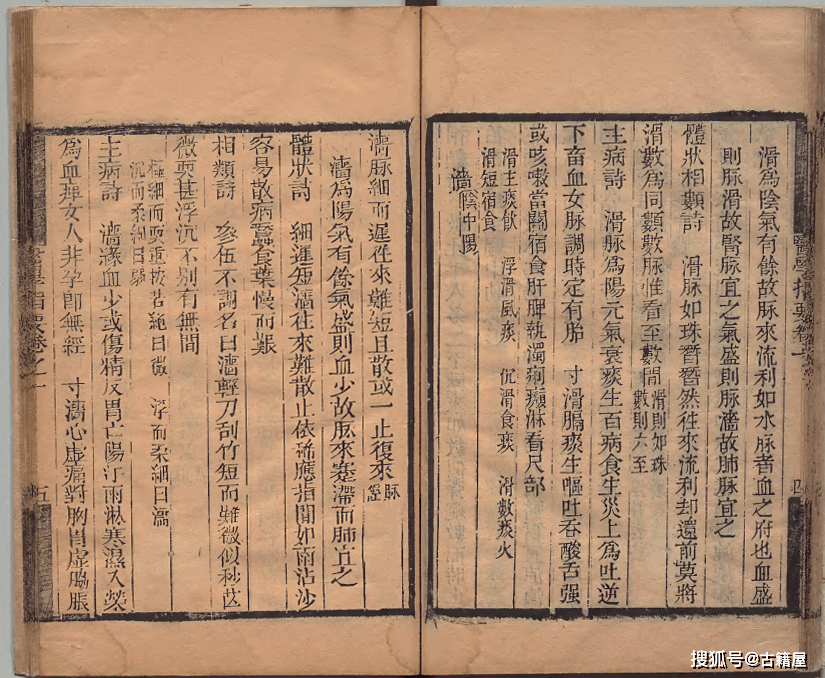 滑爲陰氣有餘故脉來流利如水脉者血之府也血盛
則脉滑故腎脉宜之氣盛則脉濇故肺脉宜之
體狀相類詩 滑脉如珠替替然往來流利却還前莫將
滑數爲同類數脉惟看至數間 滑則如珠 數則六至
主病詩 滑脉爲陽元氣衰痰生百病食生災上爲吐逆
下畜血女脉調時定有胎 寸滑膈痰生嘔吐吞酸舌强
或咳嗽當關宿食肝脾熱濁痢癩淋看尺部
滑主痰飲 浮滑風痰 沉滑食痰 滑數痰火
滑短宿食
濇 陰中陽
濇脉細而遲往來難短且散或一止復來 脉經
濇爲陽氣有餘氣盛則血少故脉來蹇滯而肺宜之
體狀詩 細遲短濇往來難散止依稀應指間如雨沾沙
容易散病蠶食葉慢而艱
相類詩 參伍不調名曰濇輕刀刮竹短而難微似秒芒
微耎甚浮沉不别有無間
極細而耎重按若絕曰微 浮而柔細曰濡
沉而柔細曰弱
主病詩 濇緣血少或傷精反胃亡陽汗雨淋寒濕入榮
爲血痺女人非孕卽無經 寸濇心虛痛對胸胃虛脇脹
醫學指要卷一
四
五
搜狐号@古籍屋